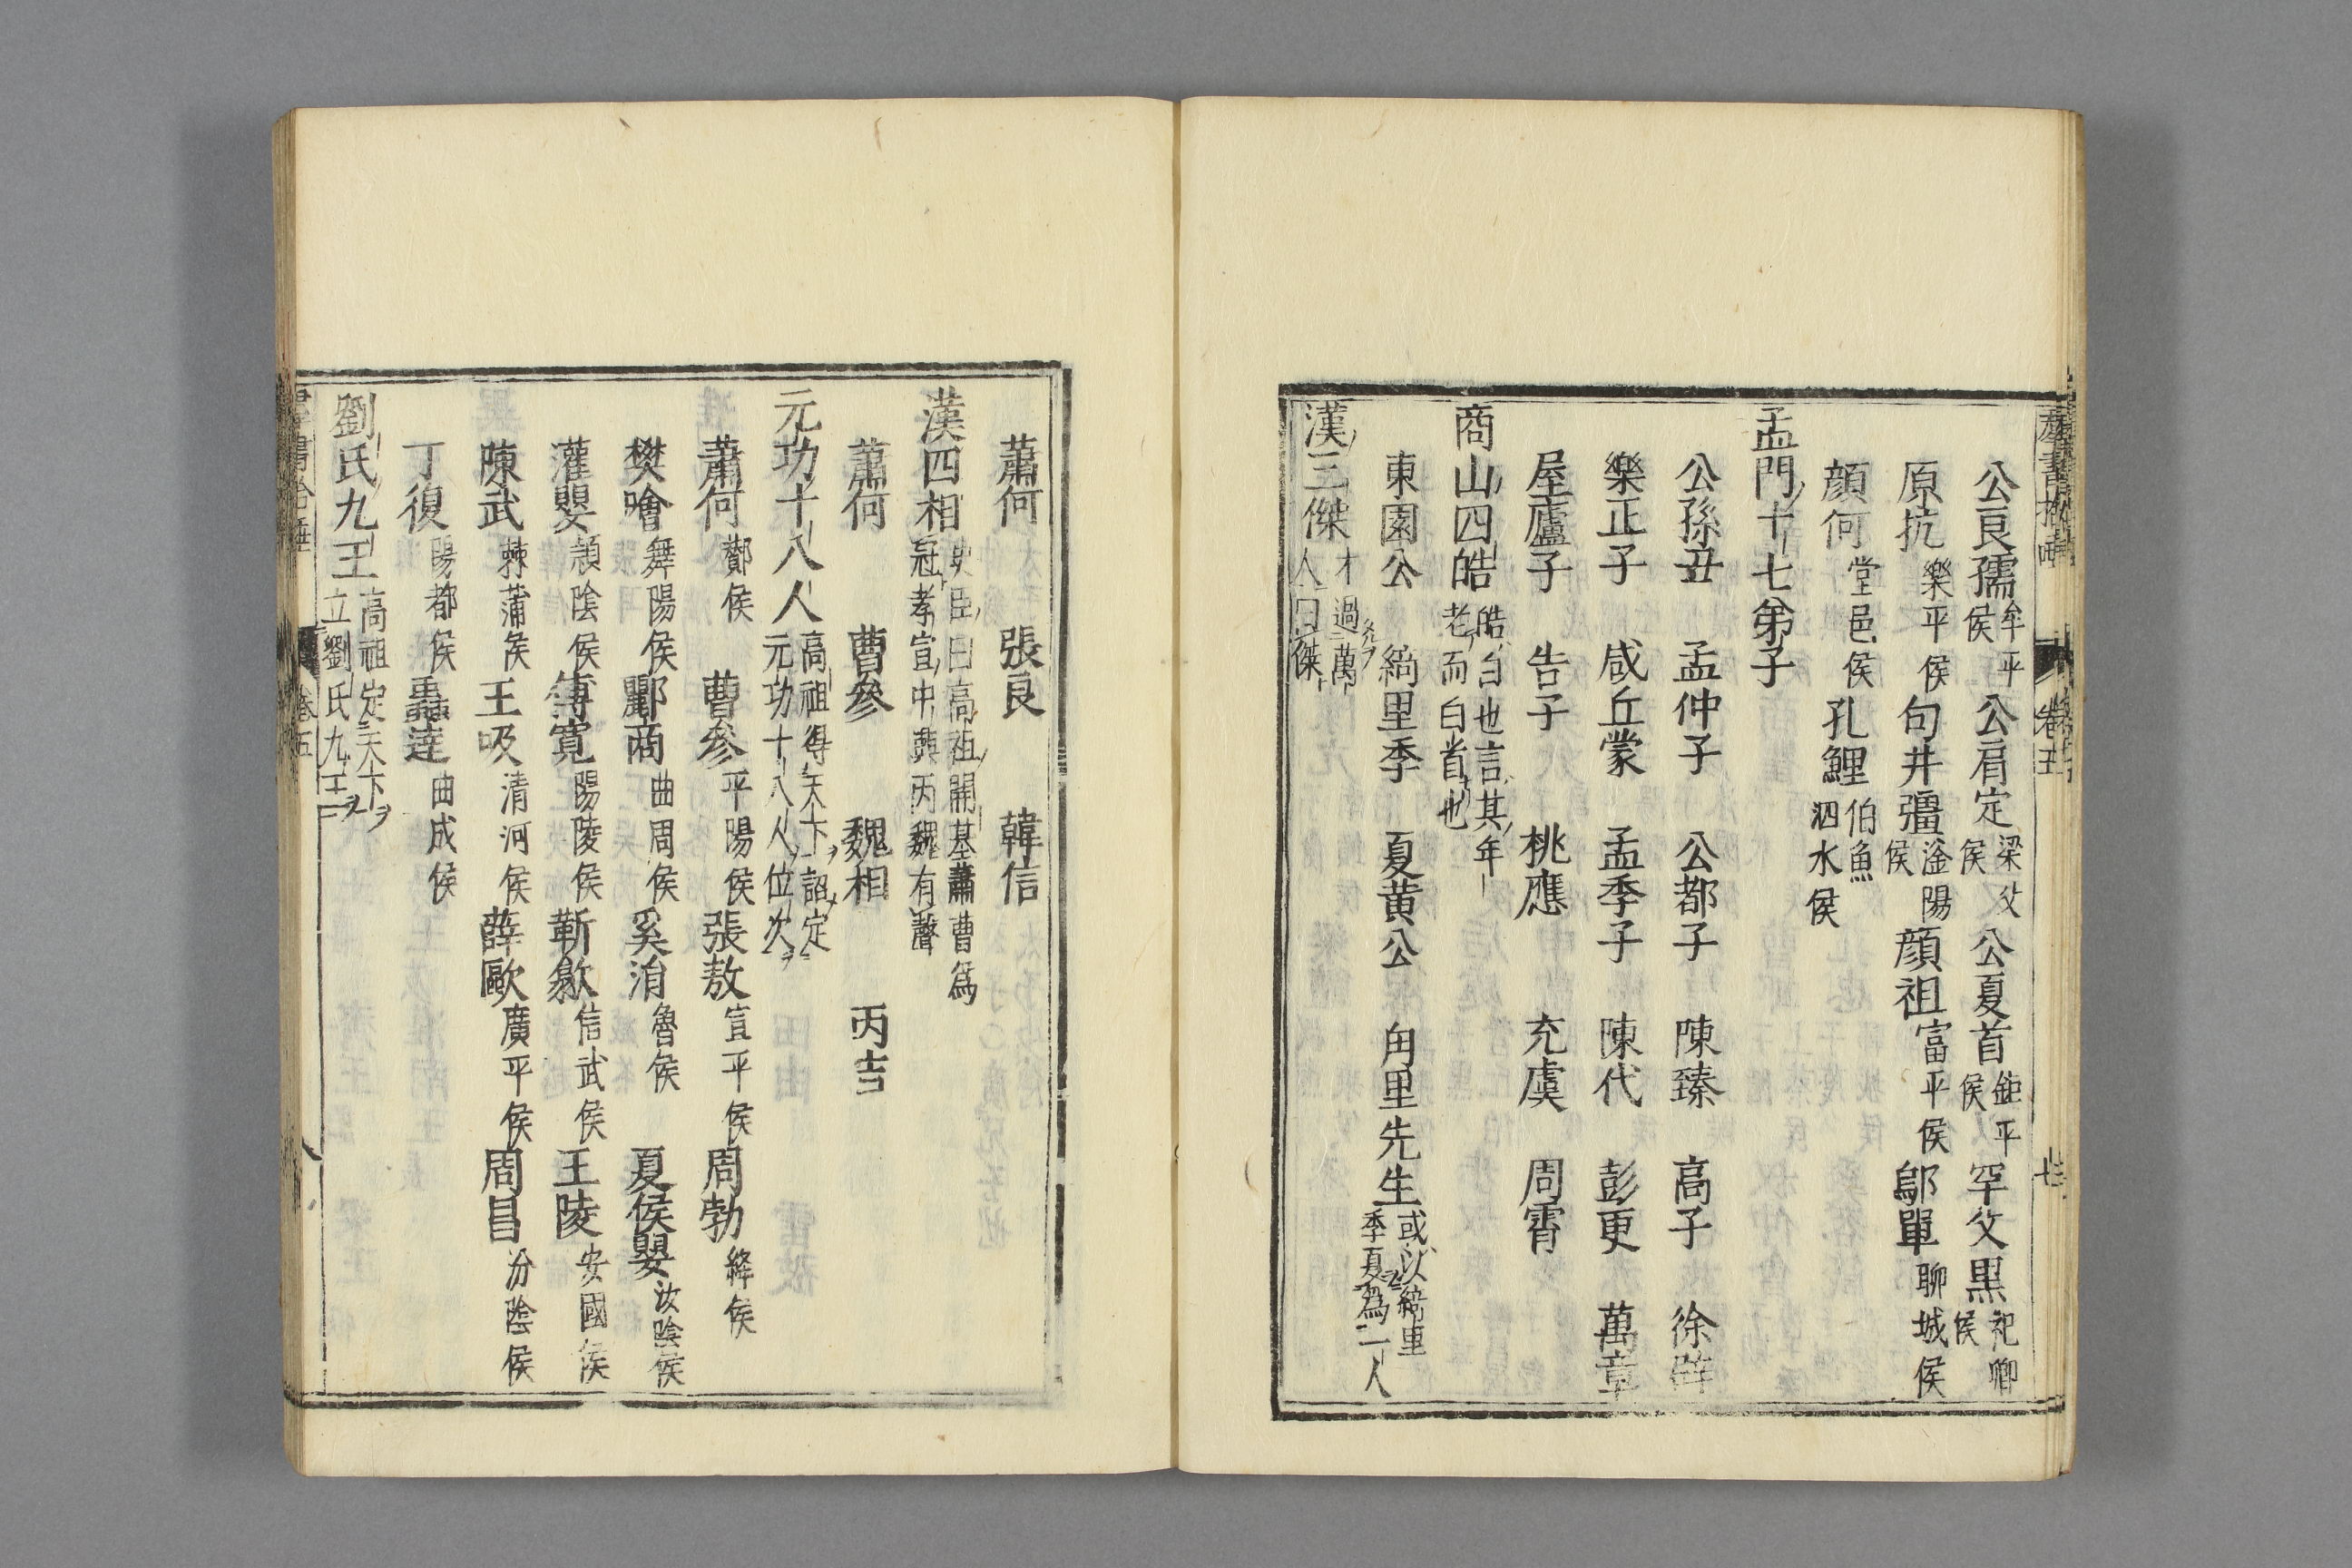 公良孺牟平侯 公肩定梁父侯 公夏首鉅平侯 罕父黒祀鄉侯
原抗樂平侯 句井彊滏陽侯 顔祖富平侯 鄔單聊城侯
顔何堂邑侯 孔鯉伯魚泗水侯
孟門十七弟子
公孫丑 孟仲子 公都子 陳臻 高子 徐辟
樂正子 咸丘蒙 孟季子 陳代 彭更 萬章
屋廬子 告子 桃應 充虞 周霄
商山四皓皓白也言其年老而白首也
東園公 綺里季 夏黄公 甪里先生或以綺里季夏爲一人
漢三傑才過萬人曰傑
蕭何 張良 韓信
漢四相史臣曰高祖開基蕭曹爲冠孝宣中興丙魏有聲
蕭何 曹參 魏相 丙吉
元功十八人高祖得天下詔定元功十八人位次
蕭何酇侯 曹參平陽侯 張敖宣平侯 周勃絳侯
樊噲舞陽侯 酈商曲周侯 奚涓魯侯 夏侯嬰汝陰侯
灌嬰潁陰侯 傅寛陽陵侯 靳歙信武侯 王陵安國侯
陳武棘蒲侯 王吸清河侯 薛歐廣平侯 周昌汾陰侯
丁復陽都侯 蟲達曲成侯
劉氏九王高祖定天下立劉氏九王
卷五